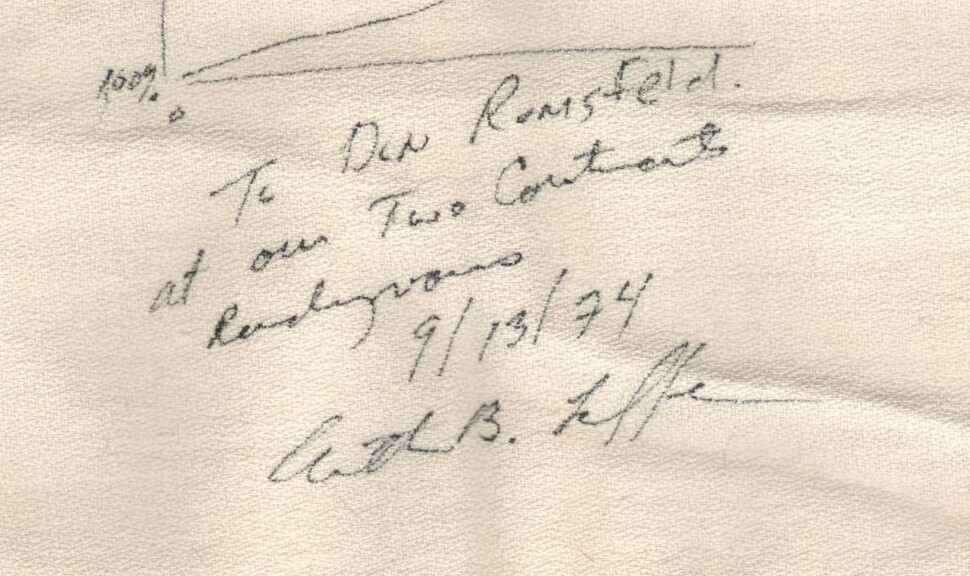 100%
0
To Don Rumsfeld.
at our Two Continents
Rendezvous
9/13/74
Arthur B. Laffer